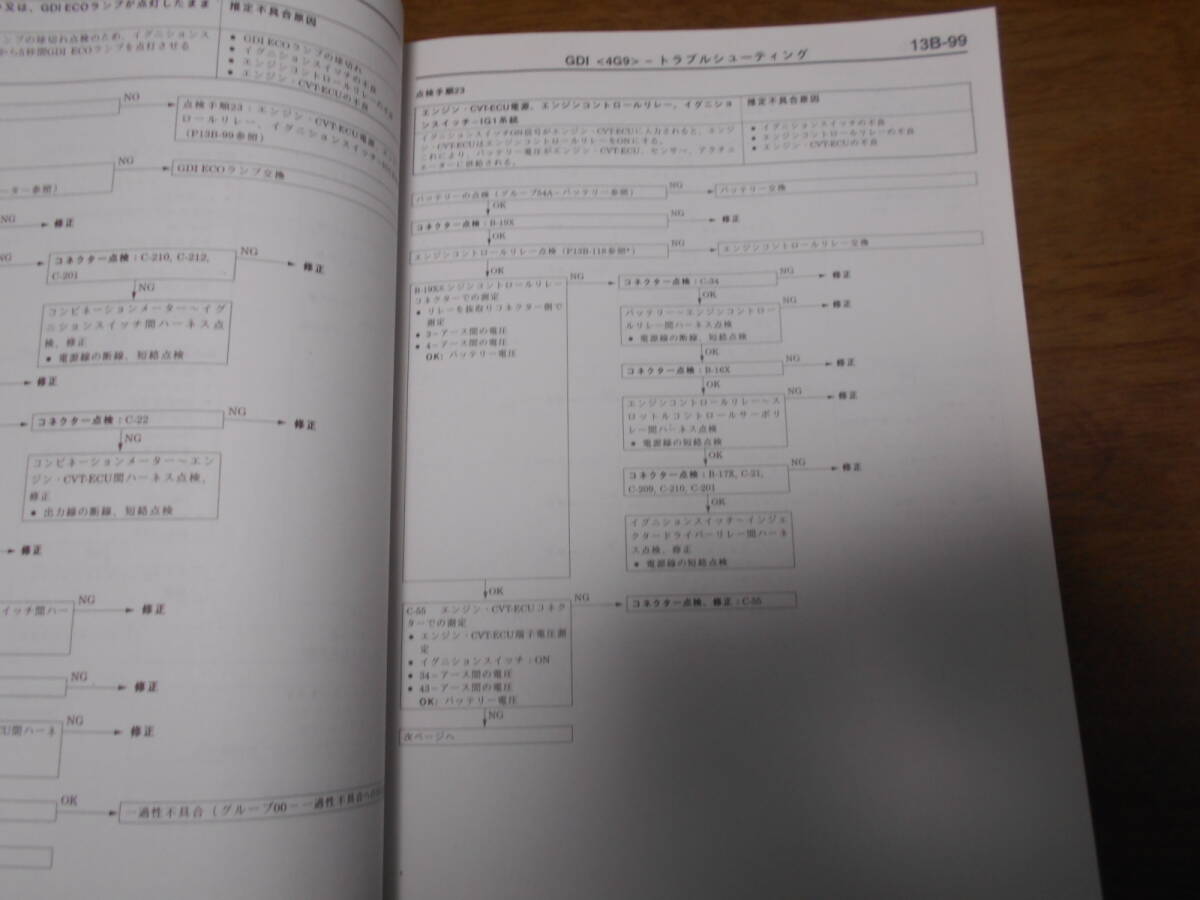 又は、GDI ECOランプが点灯したまま
推定不具合原因
ンプの球切れ点検のため、イグニションス
から5秒間GDI ECOランプを点灯させる
● GDI ECOランプの球切れ
● イグニションスイッチの不良
● エンジンコントロールリレーの不良
● エンジン・CVT-ECUの不良
NO
点検手順23：エンジン・CVT-ECU電源、エンジンコントロールリレー、イグニションスイッチ
（P13B-99参照）
NG
GDI ECOランプ交換
ーター参照）
NG
修正
NG
コネクター点検：C-210, C-212,
C-201
NG
修正
NG
コンビネーションメーター～イグ
ニションスイッチ間ハーネス点
検、修正
● 電源線の断線、短絡点検
修正
コネクター点検：C-22
NG
修正
NG
コンビネーションメーター～エン
ジン・CVT-ECU間ハーネス点検、
修正
● 出力線の断線、短絡点検
修正
イッチ間ハー
NG
修正
NG
修正
CU間ハーネ
NG
修正
OK
一過性不具合（グループ00－一過性不具合への
13B-99
GDI <4G9> － トラブルシューティング
点検手順23
エンジン・CVT-ECU電源、エンジンコントロールリレー、イグニショ
ンスイッチ－IG1系統
推定不具合原因
イグニションスイッチON信号がエンジン・CVT-ECUに入力されると、エンジ
ン・CVT-ECUはエンジンコントロールリレーをONにする。
これにより、バッテリー電圧がエンジン・CVT-ECU、センサー、アクチュ
エーターに供給される。
● イグニションスイッチの不良
● エンジンコントロールリレーの不良
● エンジン・CVT-ECUの不良
バッテリーの点検（グループ54A－バッテリー参照）
NG
バッテリー交換
OK
コネクター点検：B-19X
NG
修正
OK
エンジンコントロールリレー点検（P13B-118参照*）
NG
エンジンコントロールリレー交換
OK
B-19Xエンジンコントロールリレー
コネクターでの測定
● リレーを抜取りコネクター側で
測定
● 3－アース間の電圧
● 4－アース間の電圧
OK：バッテリー電圧
NG
コネクター点検：C-34
NG
修正
OK
バッテリー～エンジンコントロー
ルリレー間ハーネス点検
● 電源線の断線、短絡点検
NG
修正
OK
コネクター点検：B-16X
NG
修正
OK
エンジンコントロールリレー～ス
ロットルコントロールサーボリ
レー間ハーネス点検
● 電源線の短絡点検
NG
修正
OK
コネクター点検：B-17X, C-21,
C-209, C-210, C-201
NG
修正
OK
イグニションスイッチ～インジェ
クタードライバーリレー間ハーネ
ス点検、修正
● 電源線の短絡点検
OK
C-55 エンジン・CVT-ECUコネク
ターでの測定
● エンジン・CVT-ECU端子電圧測
定
● イグニションスイッチ：ON
● 34－アース間の電圧
● 43－アース間の電圧
OK：バッテリー電圧
NG
コネクター点検、修正：C-55
NG
次ページへ